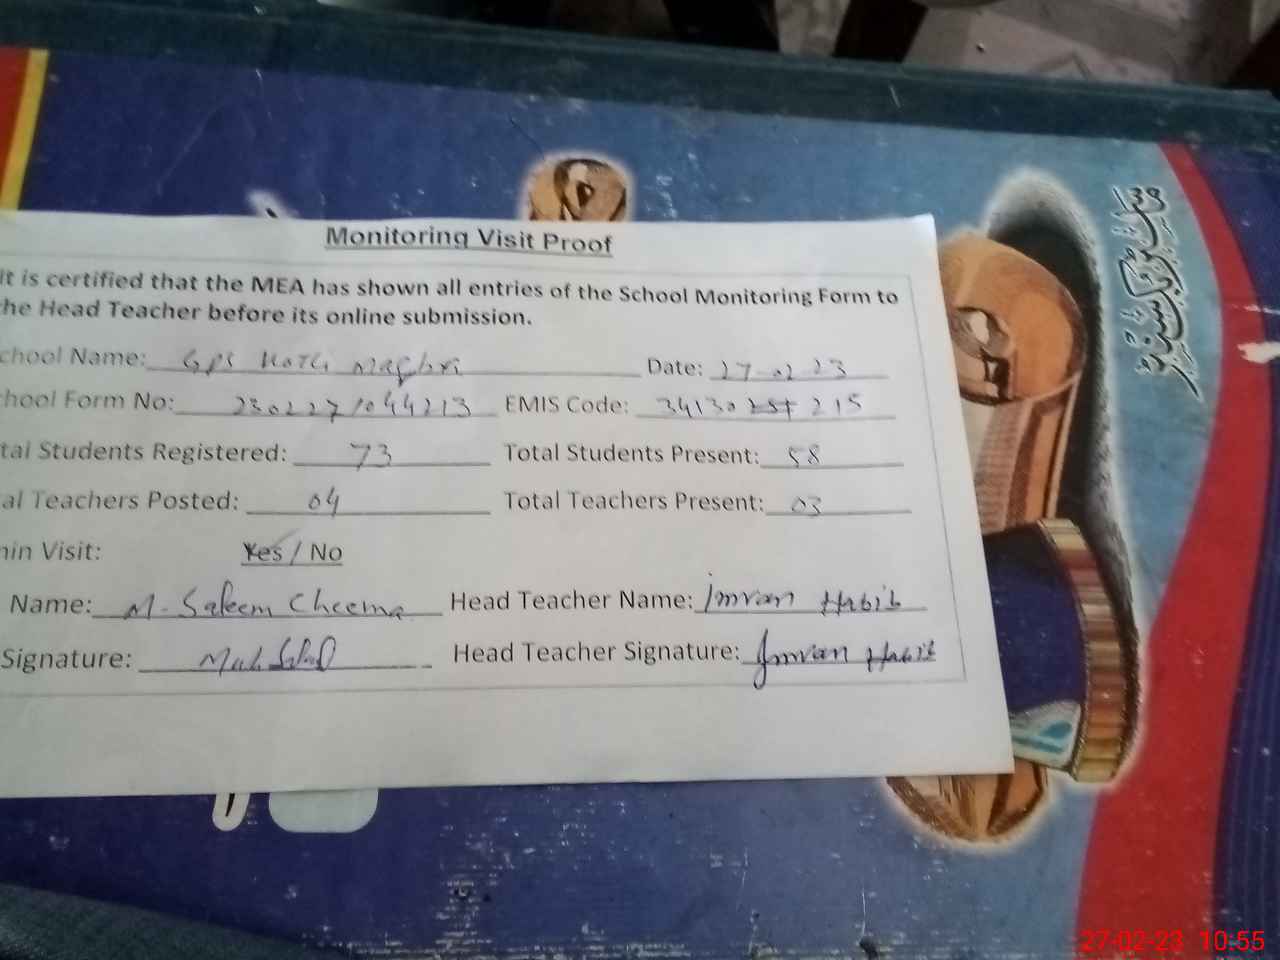 Monitoring Visit Proof
It is certified that the MEA has shown all entries of the School Monitoring Form to
he Head Teacher before its online submission.
chool Name: GPS Kotli Maghri Date: 27-02-23
hool Form No: 2302271044213 EMIS Code: 34130 215
tal Students Registered: 73 Total Students Present: 58
al Teachers Posted: 04 Total Teachers Present: 03
nin Visit: Yes / No
Name: M. Saleem Cheema Head Teacher Name: Imran Habib
Signature: Head Teacher Signature: Imran Habib
27-02-23 10:55